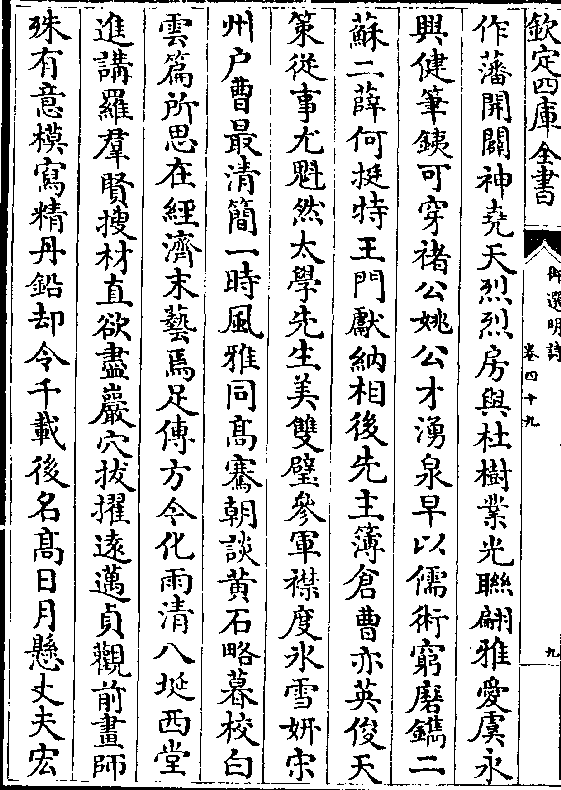 欽定四庫全書
御選明詩
卷四十九
九
作藩開闢神堯天烈烈房與杜樹業光聯翩雅愛虞永
興健筆銕可穿褚公姚公才湧泉早以儒術窮磨鐫二
蘇二薛何挺特王門獻納相後先主簿倉曹亦英俊天
策從事尤魁然太學先生美雙璧參軍襟度氷雪妍宋
州户曹最清簡一時風雅同髙騫朝談黄石略暮校白
雲篇所思在經濟末藝焉足傳方今化雨清八埏西堂
進講羅羣賢搜材直欲盡巖穴拔擢遠邁貞觀前畫師
殊有意模寫精丹鉛却令千載後名髙日月懸丈夫宏